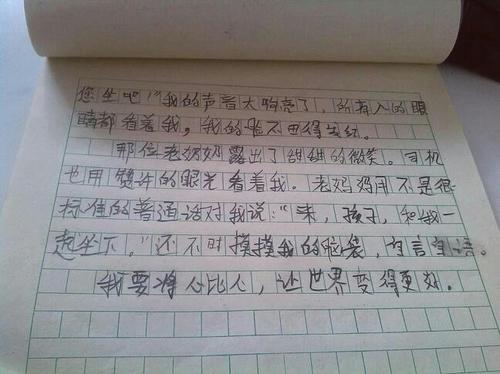 您坐吧！"我的声音太响亮了，所有人的眼
睛都看着我，我的脸不由得发红。
那位老奶奶露出了甜甜的微笑。司机
也用赞许的眼光看着我。老奶奶用不是很
标准的普通话对我说："来，孩子，和我一
起坐下。"还不时摸摸我的脑袋，自言自语。
我要将心比心，让世界变得更好。